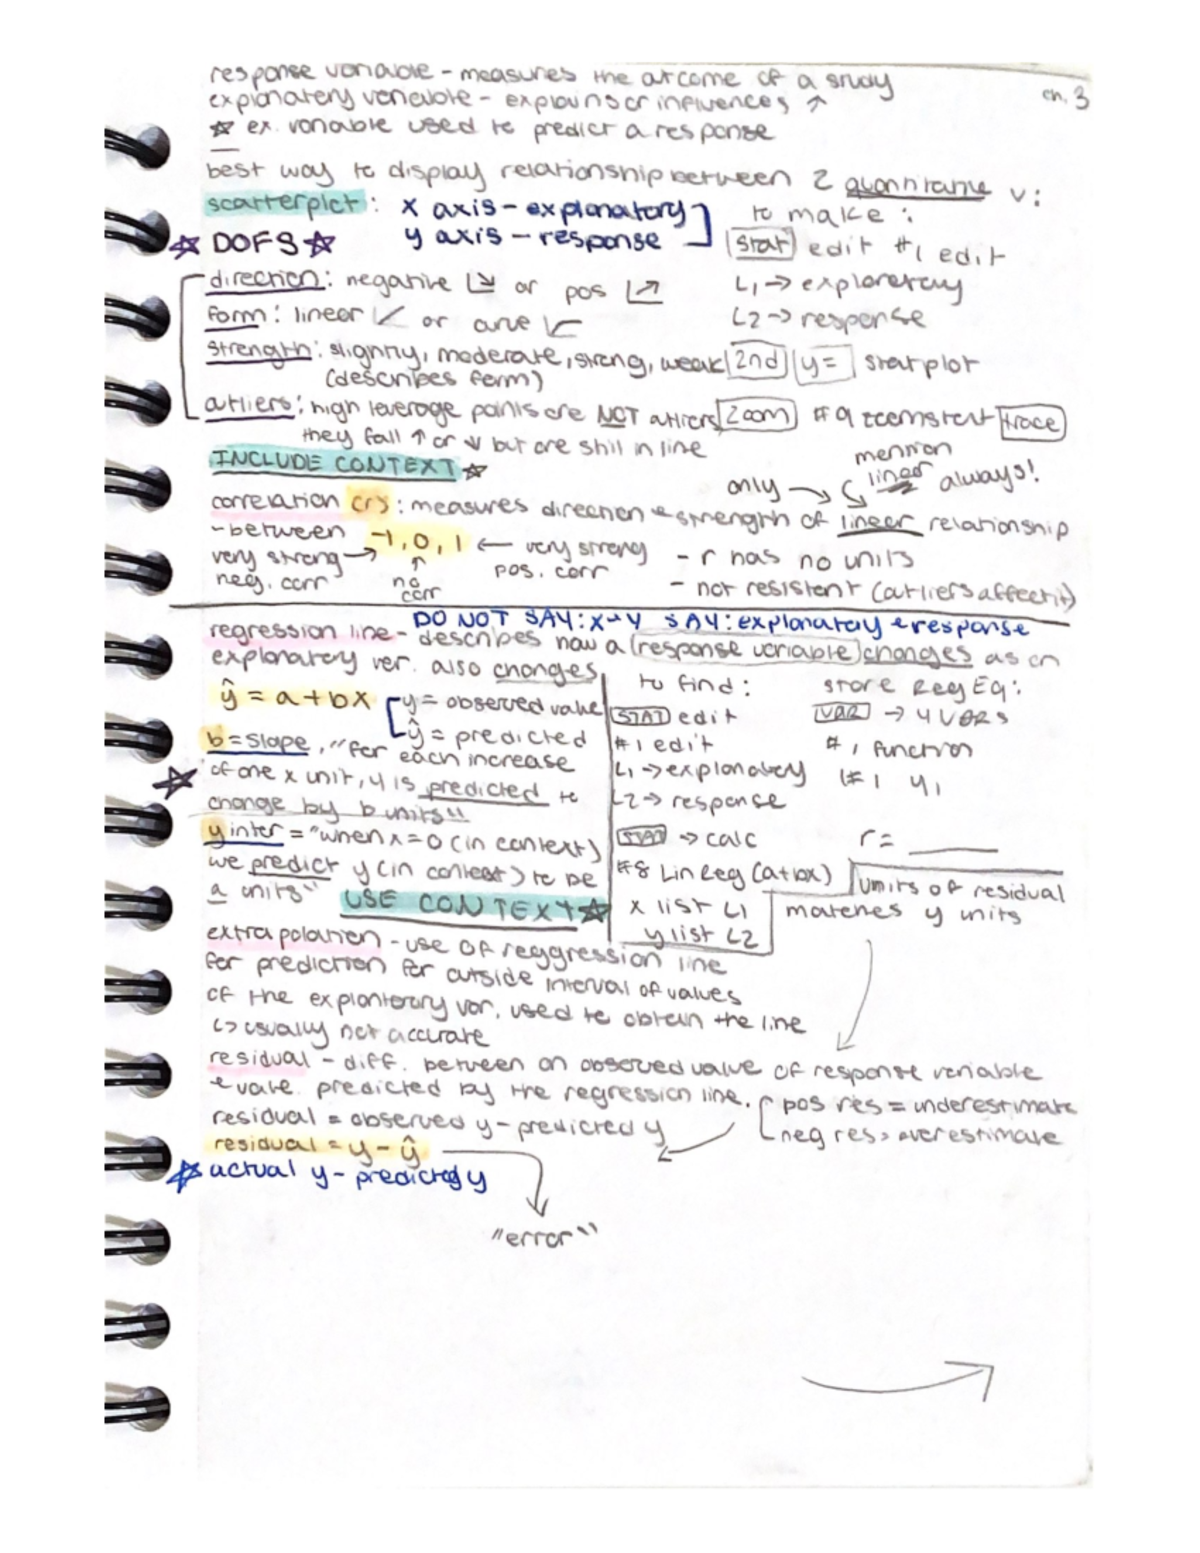 ch. 3
response variable - measures the outcome of a study
explanatory variable - explains or influences ↑
☆ ex. variable used to predict a response
best way to display relationship between 2 quantitative v:
scatterplot: x axis - explanatory
y axis - response
☆ DOFS ☆
to make:
stat edit #1 edit
L1 → explanatory
L2 → response
2nd y= statplot
Zoom #9 zoomstat trace
direction: negative or pos
form: linear or curve
strength: slightly, moderate, strong, weak
(describes form)
outliers: high leverage points are NOT outliers
they fall ↑ or ↓ but are still in line
INCLUDE CONTEXT ☆
mention
linear always!
only
correlation (r): measures direction & strength of linear relationship
- between -1, 0, 1 ← very strong
pos. corr
very strong →
neg. corr
no
corr
- r has no units
- not resistent (outliers affect it)
DO NOT SAY: x → y SAY: explanatory & response
regression line - describes how a response variable changes as an
explanatory var. also changes
ŷ = a + bx
y = observed value
ŷ = predicted
b = slope, "for each increase
of one x unit, y is predicted to
change by b units"
y inter = "when x = 0 (in context)
we predict y (in context) to be
a units"
USE CONTEXT ☆
to find:
STAT edit
#1 edit
L1 → explanatory
L2 → response
STAT → calc
#8 LinReg (a+bx)
x list L1
y list L2
store RegEQ:
VAR → Y VARS
#1 function
#1 y1
r = ____
units of residual
matches y units
extrapolation - use of reggression line
for prediction for outside interval of values
of the explantorary var. used to obtain the line
↳ usually not accurate
residual - diff. between an observed value of response variable
& value. predicted by the regression line.
residual = observed y - predicted y
pos res = underestimate
neg res = overestimate
residual = y - ŷ
☆ actual y - predicted y
"error"